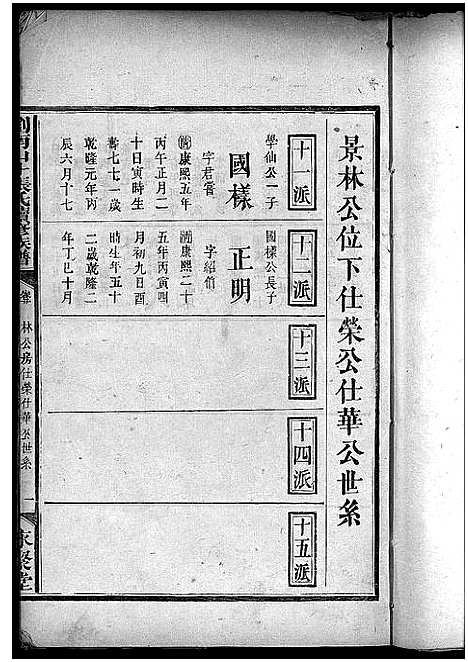 景林公位下仕榮公仕華公世系
十一派
學仙公一子
國樣
字君 
清康熙五年
丙午正月二
十日寅時生
七七一歲
乾隆元年丙
辰六月十七
十二派
國樣公長子
正明
字紹
清康熙二十
五年丙寅四
月初九日酉
時生年五十
二歲乾隆二
年丁巳十月
十三派
十四派
十五派
林公房仕榮仕華公世系
一
永聚堂